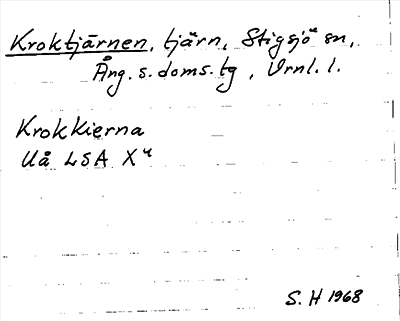 Kroktjärnen, tjärn, Stigsjö sn,
Ång. s. doms. tg, Vrnl. l.
Krokkierna
Uå LSA X4
S. H 1968